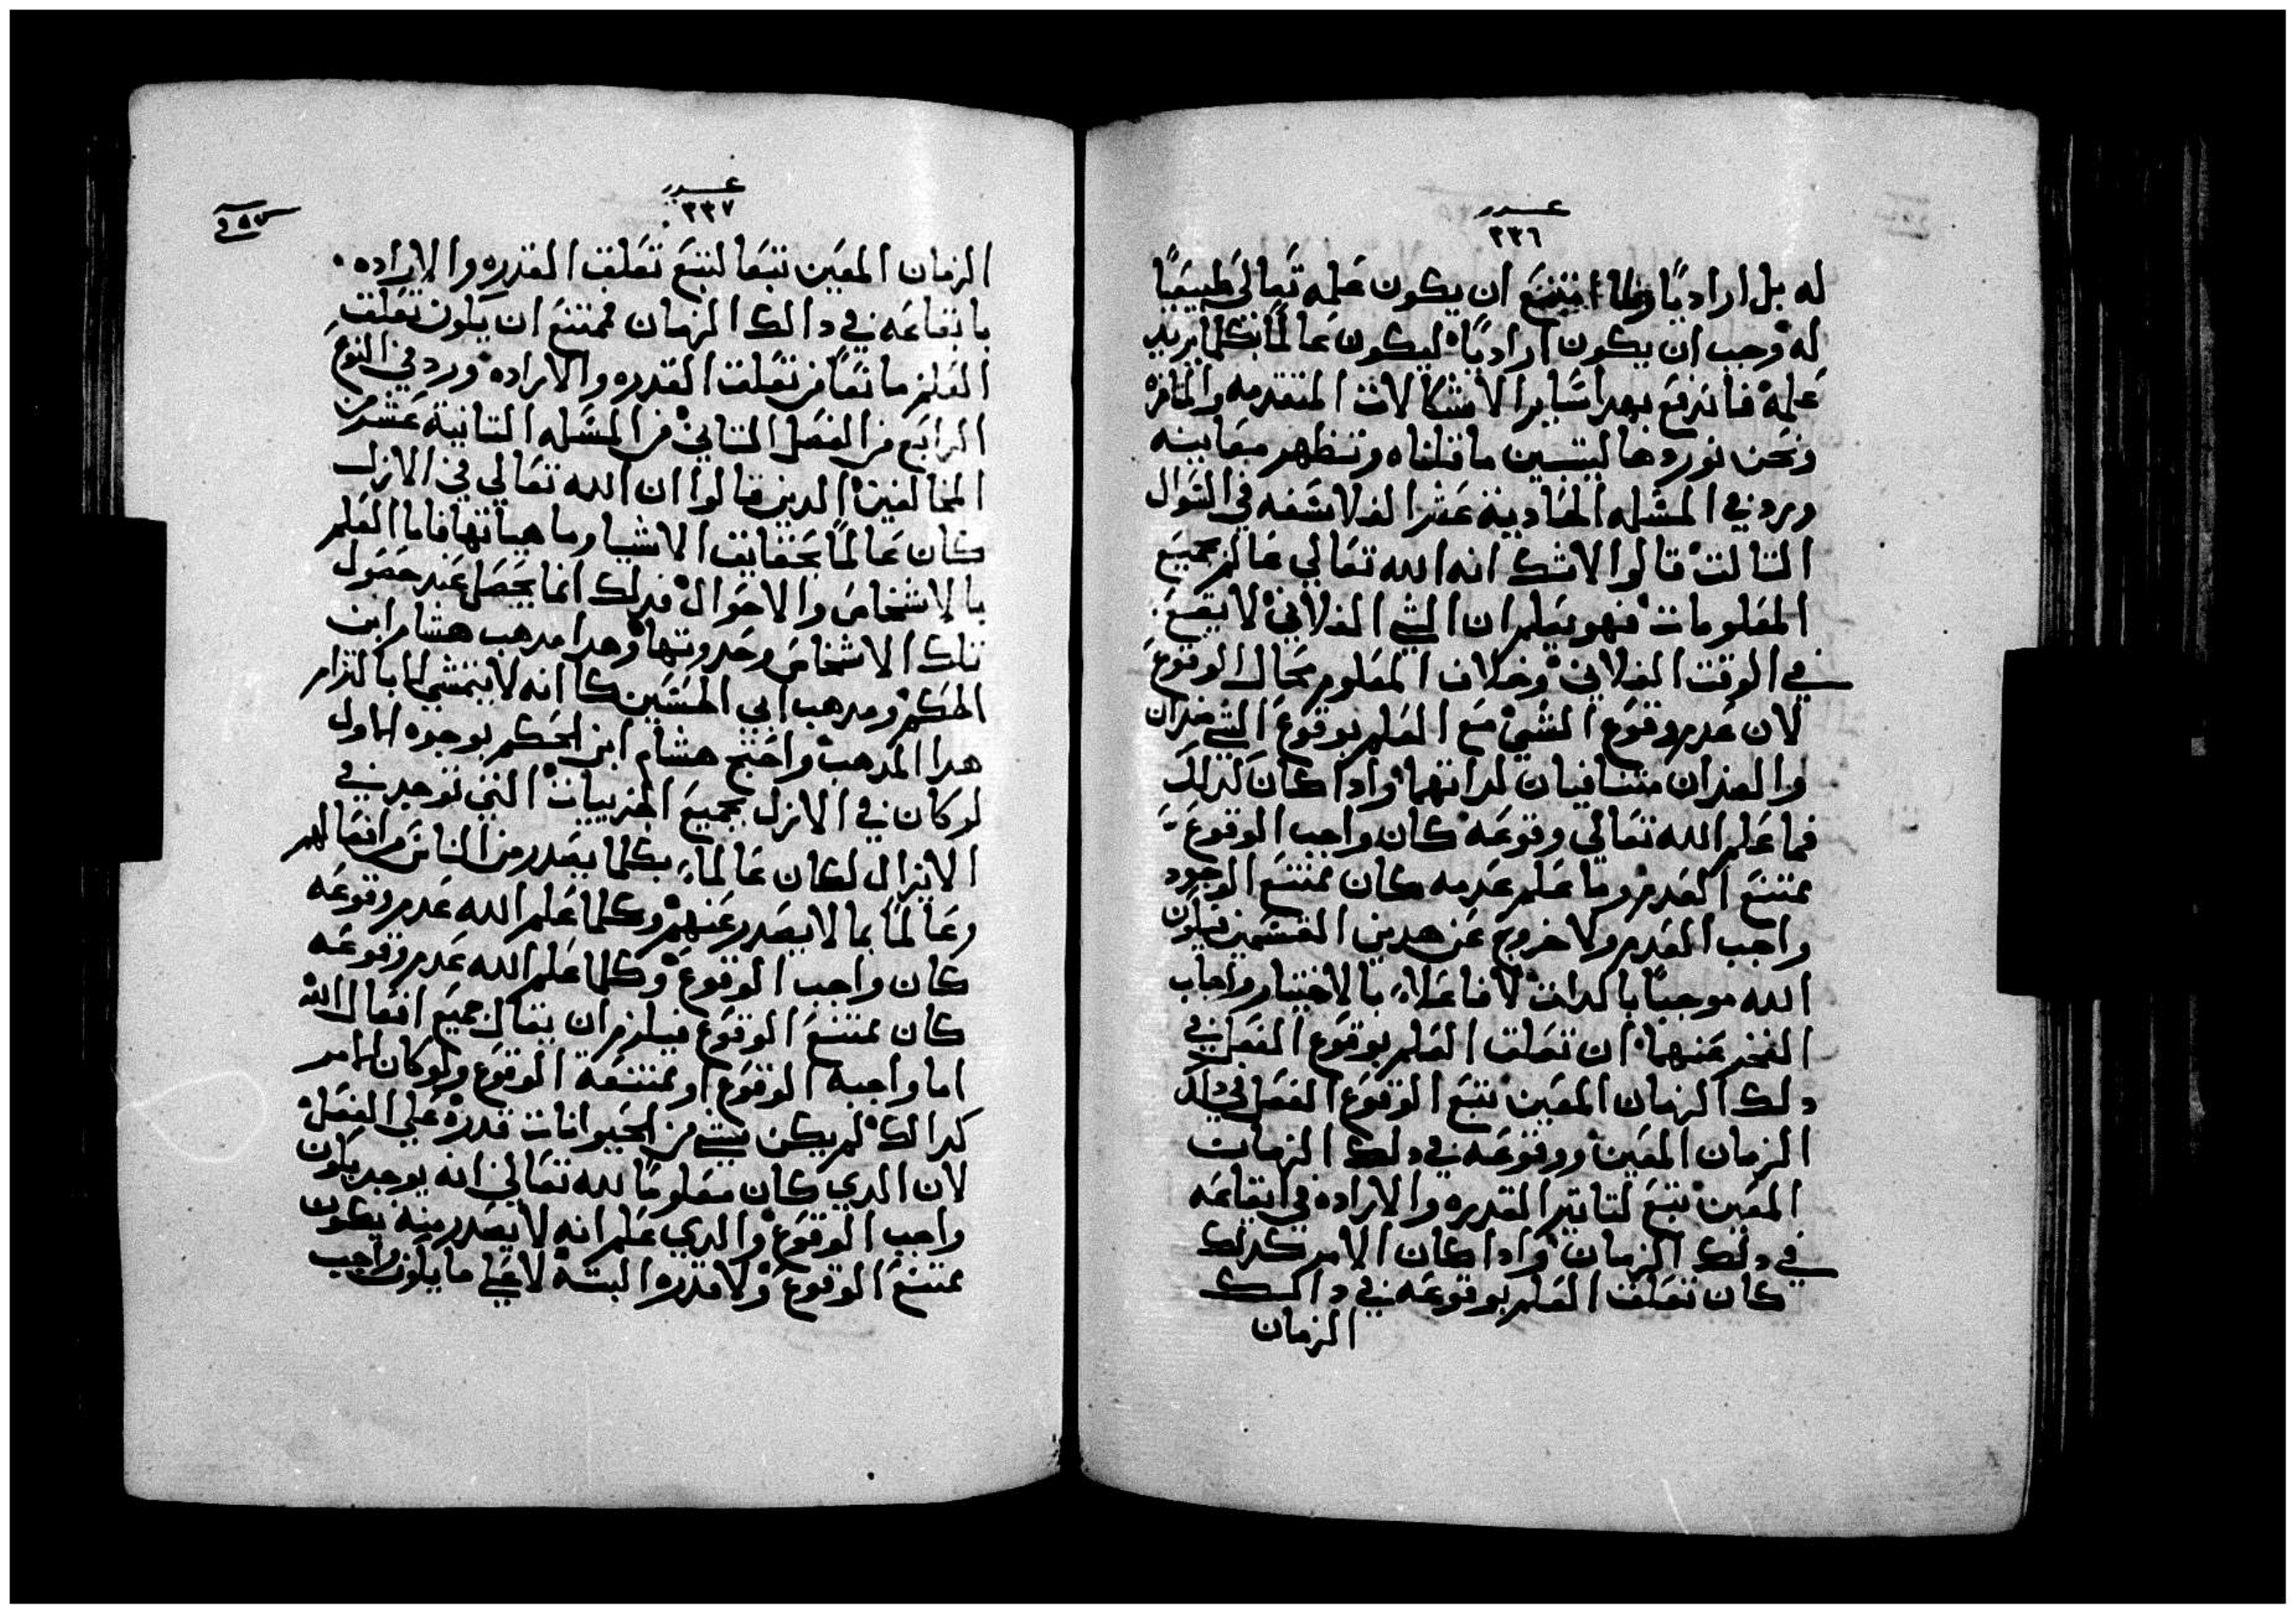 عدد
٣٣٦
له بل اراديًا ولما امتنع ان يكون علمه تعالى طبيعيًا
له وجب ان يكون اراديًا ليكون عالمًا بكلما يريد
علمه فاندفع بهدا ساير الاشكالات المتقدمه والمتاخره
ونحن نوردها ليتبين ما قلناه وتظهر معاينه
ورد في المسله الحاديه عشر الفلاسفه في السوال
التالت قالوا لا شك انه الله تعالي عالم بجميع
المعلومات فهو يعلم ان الشي الفلاني لا يقع
في الوقت الفلاني وخلاف المعلوم محال الوقوع
لان عدم وقوع الشي مع العلم بوقوع الشي ضدان
والضدان متنافيان لداتهما وادا كان كدالك
فما علم الله تعالي وقوعه كان واجب الوقوع
ممتنع العدم وما علم عدمه كان ممتنع الوجود
واجب العدم ولا خروج عن هدين القسمين فيكون
الله موجبًا بالدات لا فاعلاً بالاختيار واجاب
الفخر عنهما ان تعلق العلم بوقوع الفعل في
دلك الزمان المعين تبع الوقوع الفعل في دلك
الزمان المعين ووقوعه في دلك الزمان
المعين تبع لتاتير القدره والاراده في ايقاعه
في دلك الزمان وادا كان الامر كدلك
كان تعلق العلم بوقوعه في دالك
الزمان
عدد
٣٣٧
الزمان المعين تبعا لتبع تعلق القدره والاراده
بايقاعه في دالك الزمان فممتنع ان يكون تعلق
العلم مانعًا من تعلق القدره والاراده ورد في النوع
الرابع من الفصل التاني من المسله التانية عشر من
المخالفين الدين قالوا ان الله تعالي في الازل
كان عالمًا بحقايق الاشيا وماهياتها فاما العلم
بالاشخاص والاحوال فدلك انما يحصل عند حصول
تلك الاشخاص وحدوتها وهدا مدهب هشام ابن
الحكم ومدهب ابي الحسين كما انه لا يتمشي الا بالتزام
هدا المدهب واحتج هشام ابن الحكم بوجوه الاول
لو كان في الازل بجميع الجزييات التي توجد في
الايزال لكان عالماً بكلما يصدر من الناس من افعالهم
وعالمًا بما لا يصدر عنهم وكلما علم الله عدم وقوعه
كان واجب الوقوع وكلما علم الله عدم وقوعه
كان ممتنع الوقوع فيلزم ان يقال جميع افعال الله
اما واجبة الوقوع او ممتنعة الوقوع ولو كان الامر
كدالك لم يكن شي من الحيوانات قدرة علي الفعل
لان الدي كان معلومًا لله تعالي انه يوجد يكون
واجب الوقوع والدي علم انه لا يصدر منه يكون
ممتنع الوقوع ولا قدره البتة لا علي ما يكون واجب